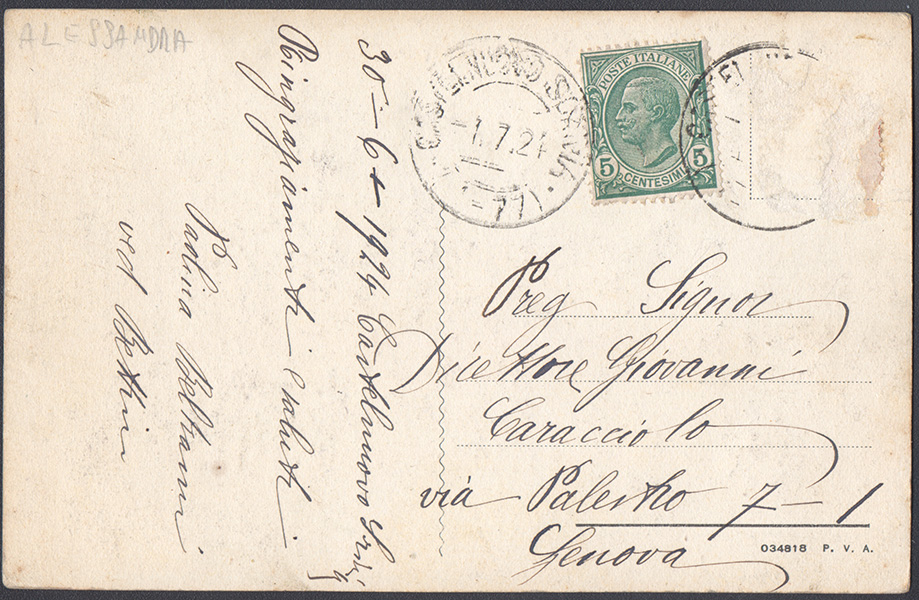 ALESSANDRA
30-6-1924 Castelnuovo Scrivia
Ringraziamenti e saluti
Paolina Beltrami
ved Bettin
CASTELNUOVO SCRIVIA
-1.7.24
POSTE ITALIANE
5 5
CENTESIMI
Preg Signor
Direttore Giovanni
Caracciolo
via Palestro 7-1
Genova
034818 P. V. A.